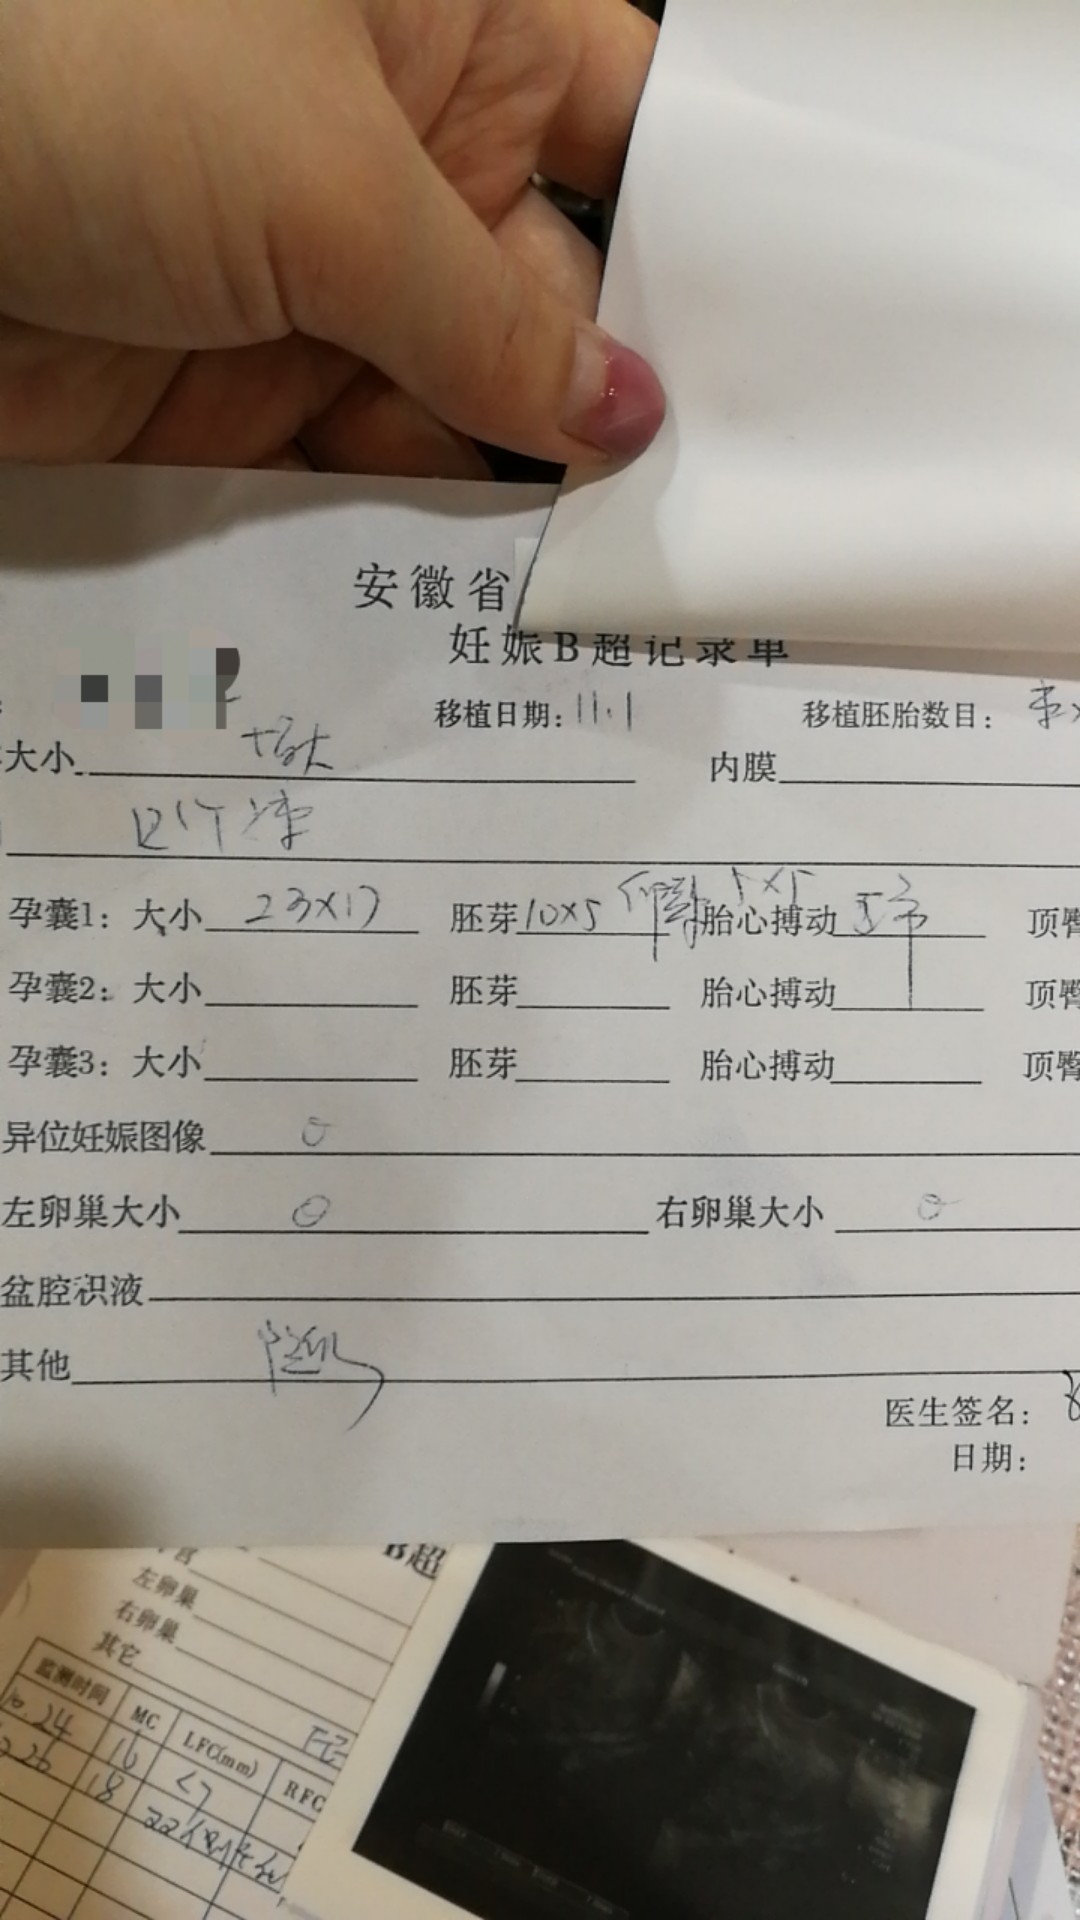 安徽省
妊娠B超记录单
移植日期：11.1 移植胚胎数目：
大小 增大 内膜
孕囊1：大小 23×17 胚芽 10×5 卵黄 5×5 胎心搏动 正常 顶臀
孕囊2：大小 胚芽 胎心搏动 顶臀
孕囊3：大小 胚芽 胎心搏动 顶臀
异位妊娠图像
左卵巢大小 右卵巢大小
盆腔积液
其他
医生签名：
日期：
B超
宫
左卵巢
右卵巢
其它
监测时间 MC LFC(mm) RFC
10.24 16 <7
26 18